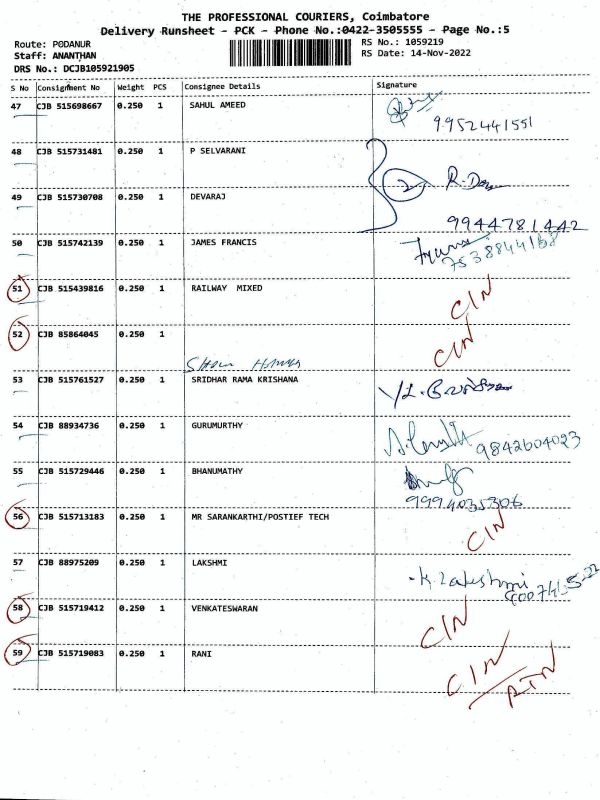 THE PROFESSIONAL COURIERS, Coimbatore
Delivery Runsheet - PCK - Phone No.:0422-3505555 - Page No.:5
Route: PODANUR
RS No.: 1059219
Staff: ANANTHAN
RS Date: 14-Nov-2022
DRS No.: DCJB105921905
S No Consignment No Weight PCS Consignee Details Signature
47 CJB 515698667 0.250 1 SAHUL AMEED
9952441551
48 CJB 515731481 0.250 1 P SELVARANI
2
49 CJB 515730708 0.250 1 DEVARAJ
9944781442
50 CJB 515742139 0.250 1 JAMES FRANCIS
51 CJB 515439816 0.250 1 RAILWAY MIXED CIN
52 CJB 85864045 0.250 1 CIN
53 CJB 515761527 0.250 1 SRIDHAR RAMA KRISHANA
54 CJB 88934736 0.250 1 GURUMURTHY
9842604023
55 CJB 515729446 0.250 1 BHANUMATHY
9994035306
56 CJB 515713183 0.250 1 MR SARANKARTHI/POSTIEF TECH CIN
57 CJB 88975209 0.250 1 LAKSHMI
K. Lakshmi
58 CJB 515719412 0.250 1 VENKATESWARAN CIN
59 CJB 515719083 0.250 1 RANI CIN/RTN